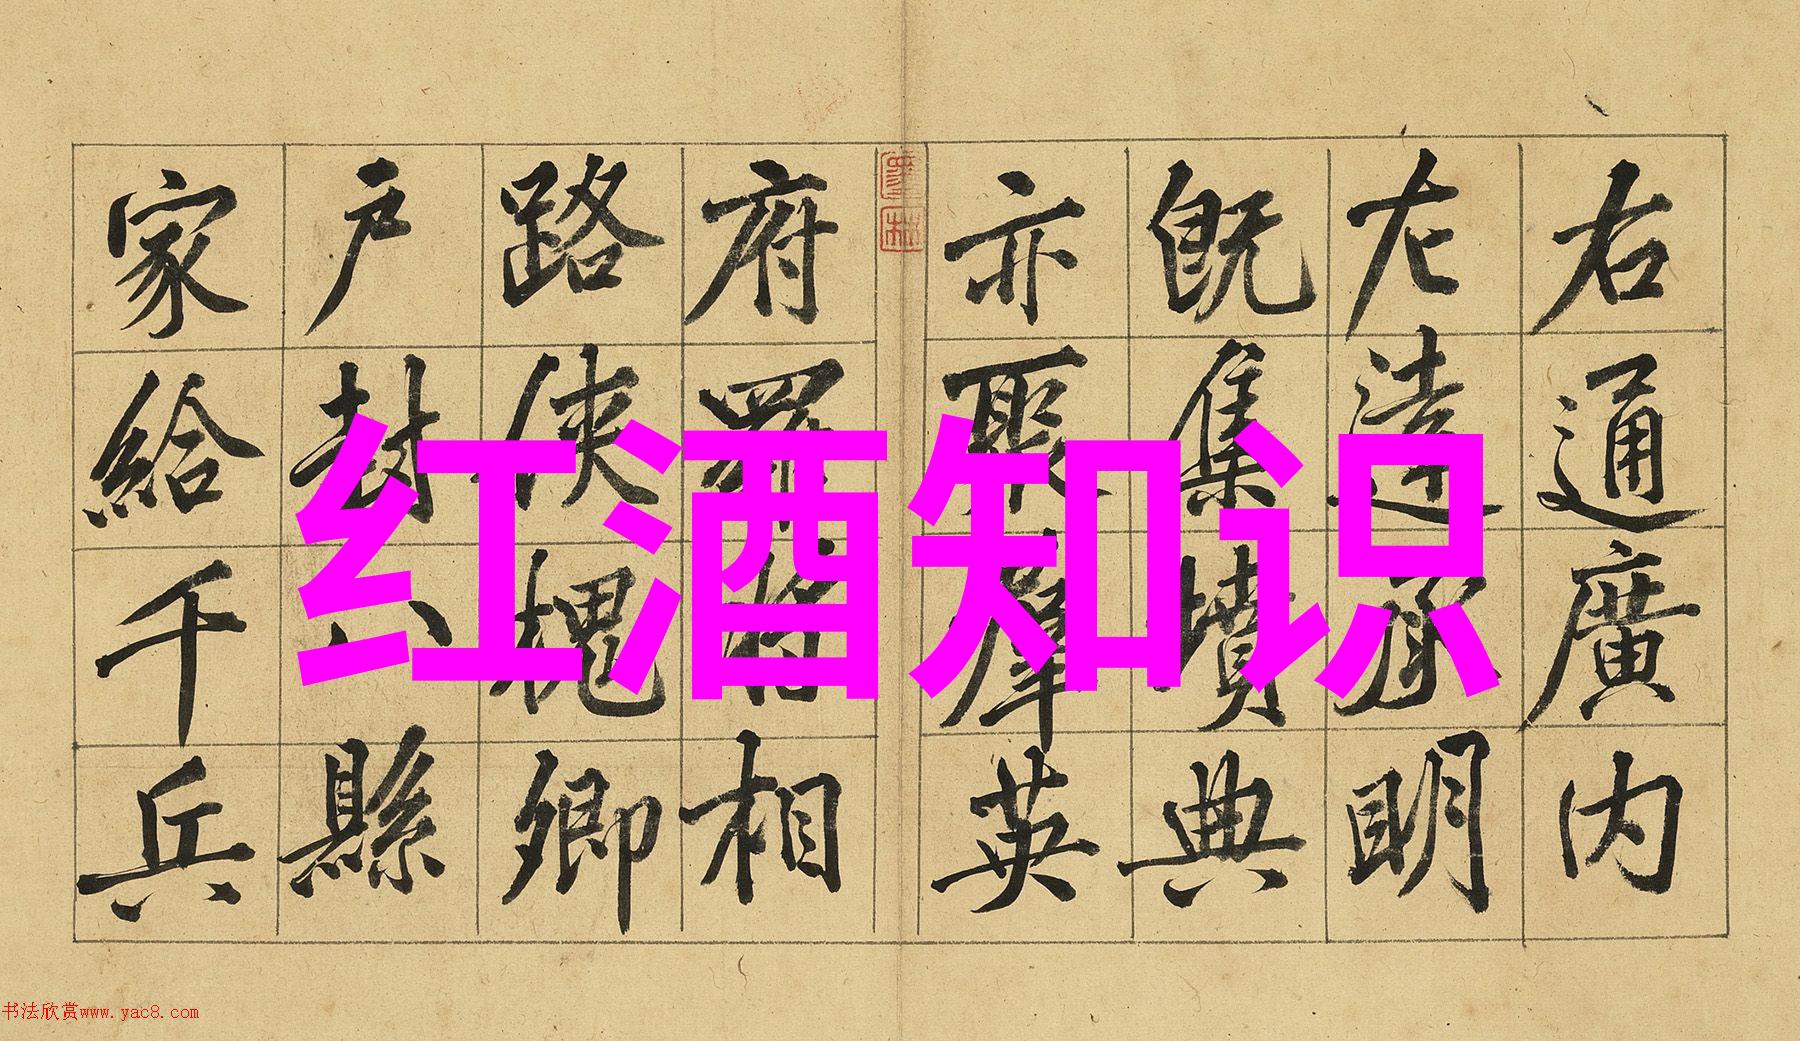 右通廣内
左達承明
既集墳典
亦聚羣英
府羅將相
路俠槐卿
戶封八縣
家給千兵
红酒知识
书法欣赏www.yac8.com